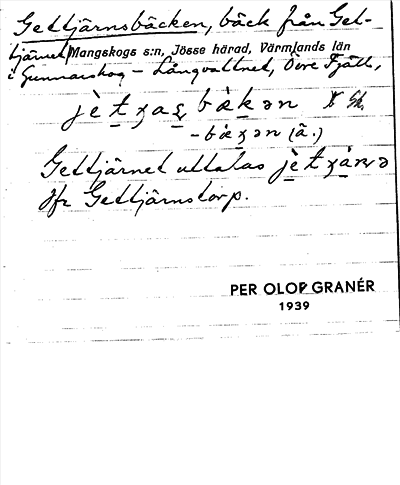 Gettjärnsbäcken, bäck från Get-
tjärnet Mangskogs s:n, Jösse härad, Värmlands län
i Gunnarskog – Långvattnet, Övre Fjäll,
jètɣas̱ bäkən
– bäɣən (ä.)
Gettjärnet uttalas jètɣänə
Jfr Gettjärnstorp.
PER OLOF GRANÉR
1939